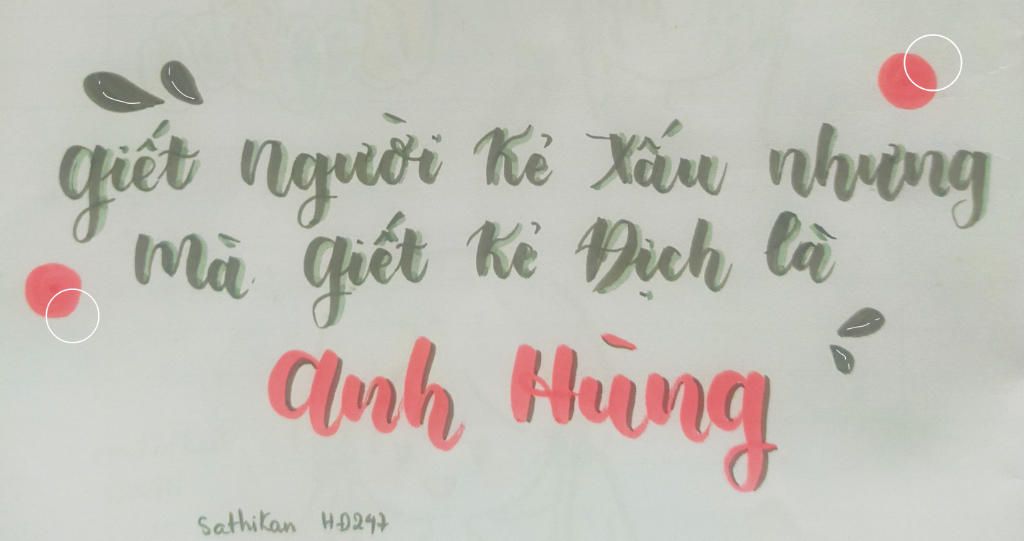 giết Người Kẻ Xấu nhưng
Mà giết Kẻ Địch là
Anh Hùng
Sathikan HĐ247